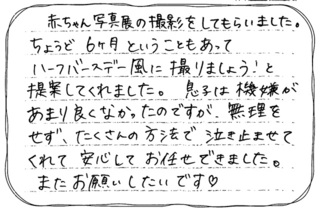 赤ちゃん写真展の撮影をしてもらいました。
ちょうど 6ヶ月 ということもあって
ハーフバースデー風に 撮りましょう！と
提案してくれました。 息子は 機嫌が
あまり良くなかったのですが、無理を
せず、たくさんの方法で 泣き止ませて
くれて 安心して お任せできました。
また お願いしたいです♡